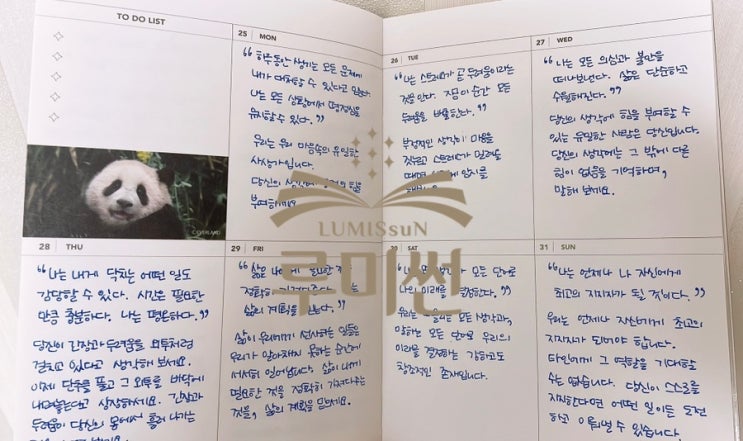 TO DO LIST
25 MON
"하루동안 생기는 모든 문제에
내가 대처할 수 있다고 믿는다.
나는 모든 상황에서 평정심을
유지할 수 있다."
우리는 우리 마음속의 유일한
사상가입니다.
당신의 생각에
부여하세요
26 TUE
"나는 스트레스가 곧 두려움이라는
것을 안다. 지금 이 순간 모든
두려움을 버리한다."
부정적인 생각이 마음을
스트레스가 밀려올
때면
27 WED
"나는 모든 의심과 불만을
떠나보낸다. 삶은 단순하고
수월해진다."
당신의 생각에 힘을 부여할 수
있는 유일한 사람은 당신입니다.
당신의 생각에는 그 밖에 다른
힘이 없음을 기억하며,
말해 보세요.
COVERLAND
LUMISsuN
루미썬
28 THU
"나는 내게 닥치는 어떤 일도
감당할 수 있다. 시간은 필요한
만큼 충분하다. 나는 평온하다."
당신이 긴장과 두려움을 외투처럼
걸치고 있다고 생각해 보세요.
이제 단추를 풀고 그 외투를 바닥에
내려놓는다고 상상하세요. 긴장과
두려움이 당신의 몸에서 흘러 나가는
29 FRI
"삶은
정확히
삶의 계획을 믿는다."
삶이 우리에게 선사하는 일들은
우리가 알아채지 못하는 순간에
서서히 일어납니다. 삶이 내게
필요한 것을 정확히 가져다주는
것을, 삶의 계획을 믿으세요.
30 SAT
모든 단어로
나의 미래를
모든 생각과,
말하는 모든 단어로 우리의
미래를 결정하는 강하고도
창조적인 존재입니다.
31 SUN
"나는 언제나 나 자신에게
최고의 지지자가 될 것이다."
우리는 언제나 자신에게 최고의
지지자가 되어야 합니다.
타인에게 그 역할을 기대할
수는 없습니다. 당신이 스스로를
지지한다면 어떤 일이든 도전
하고 이뤄낼 수 있습니다.